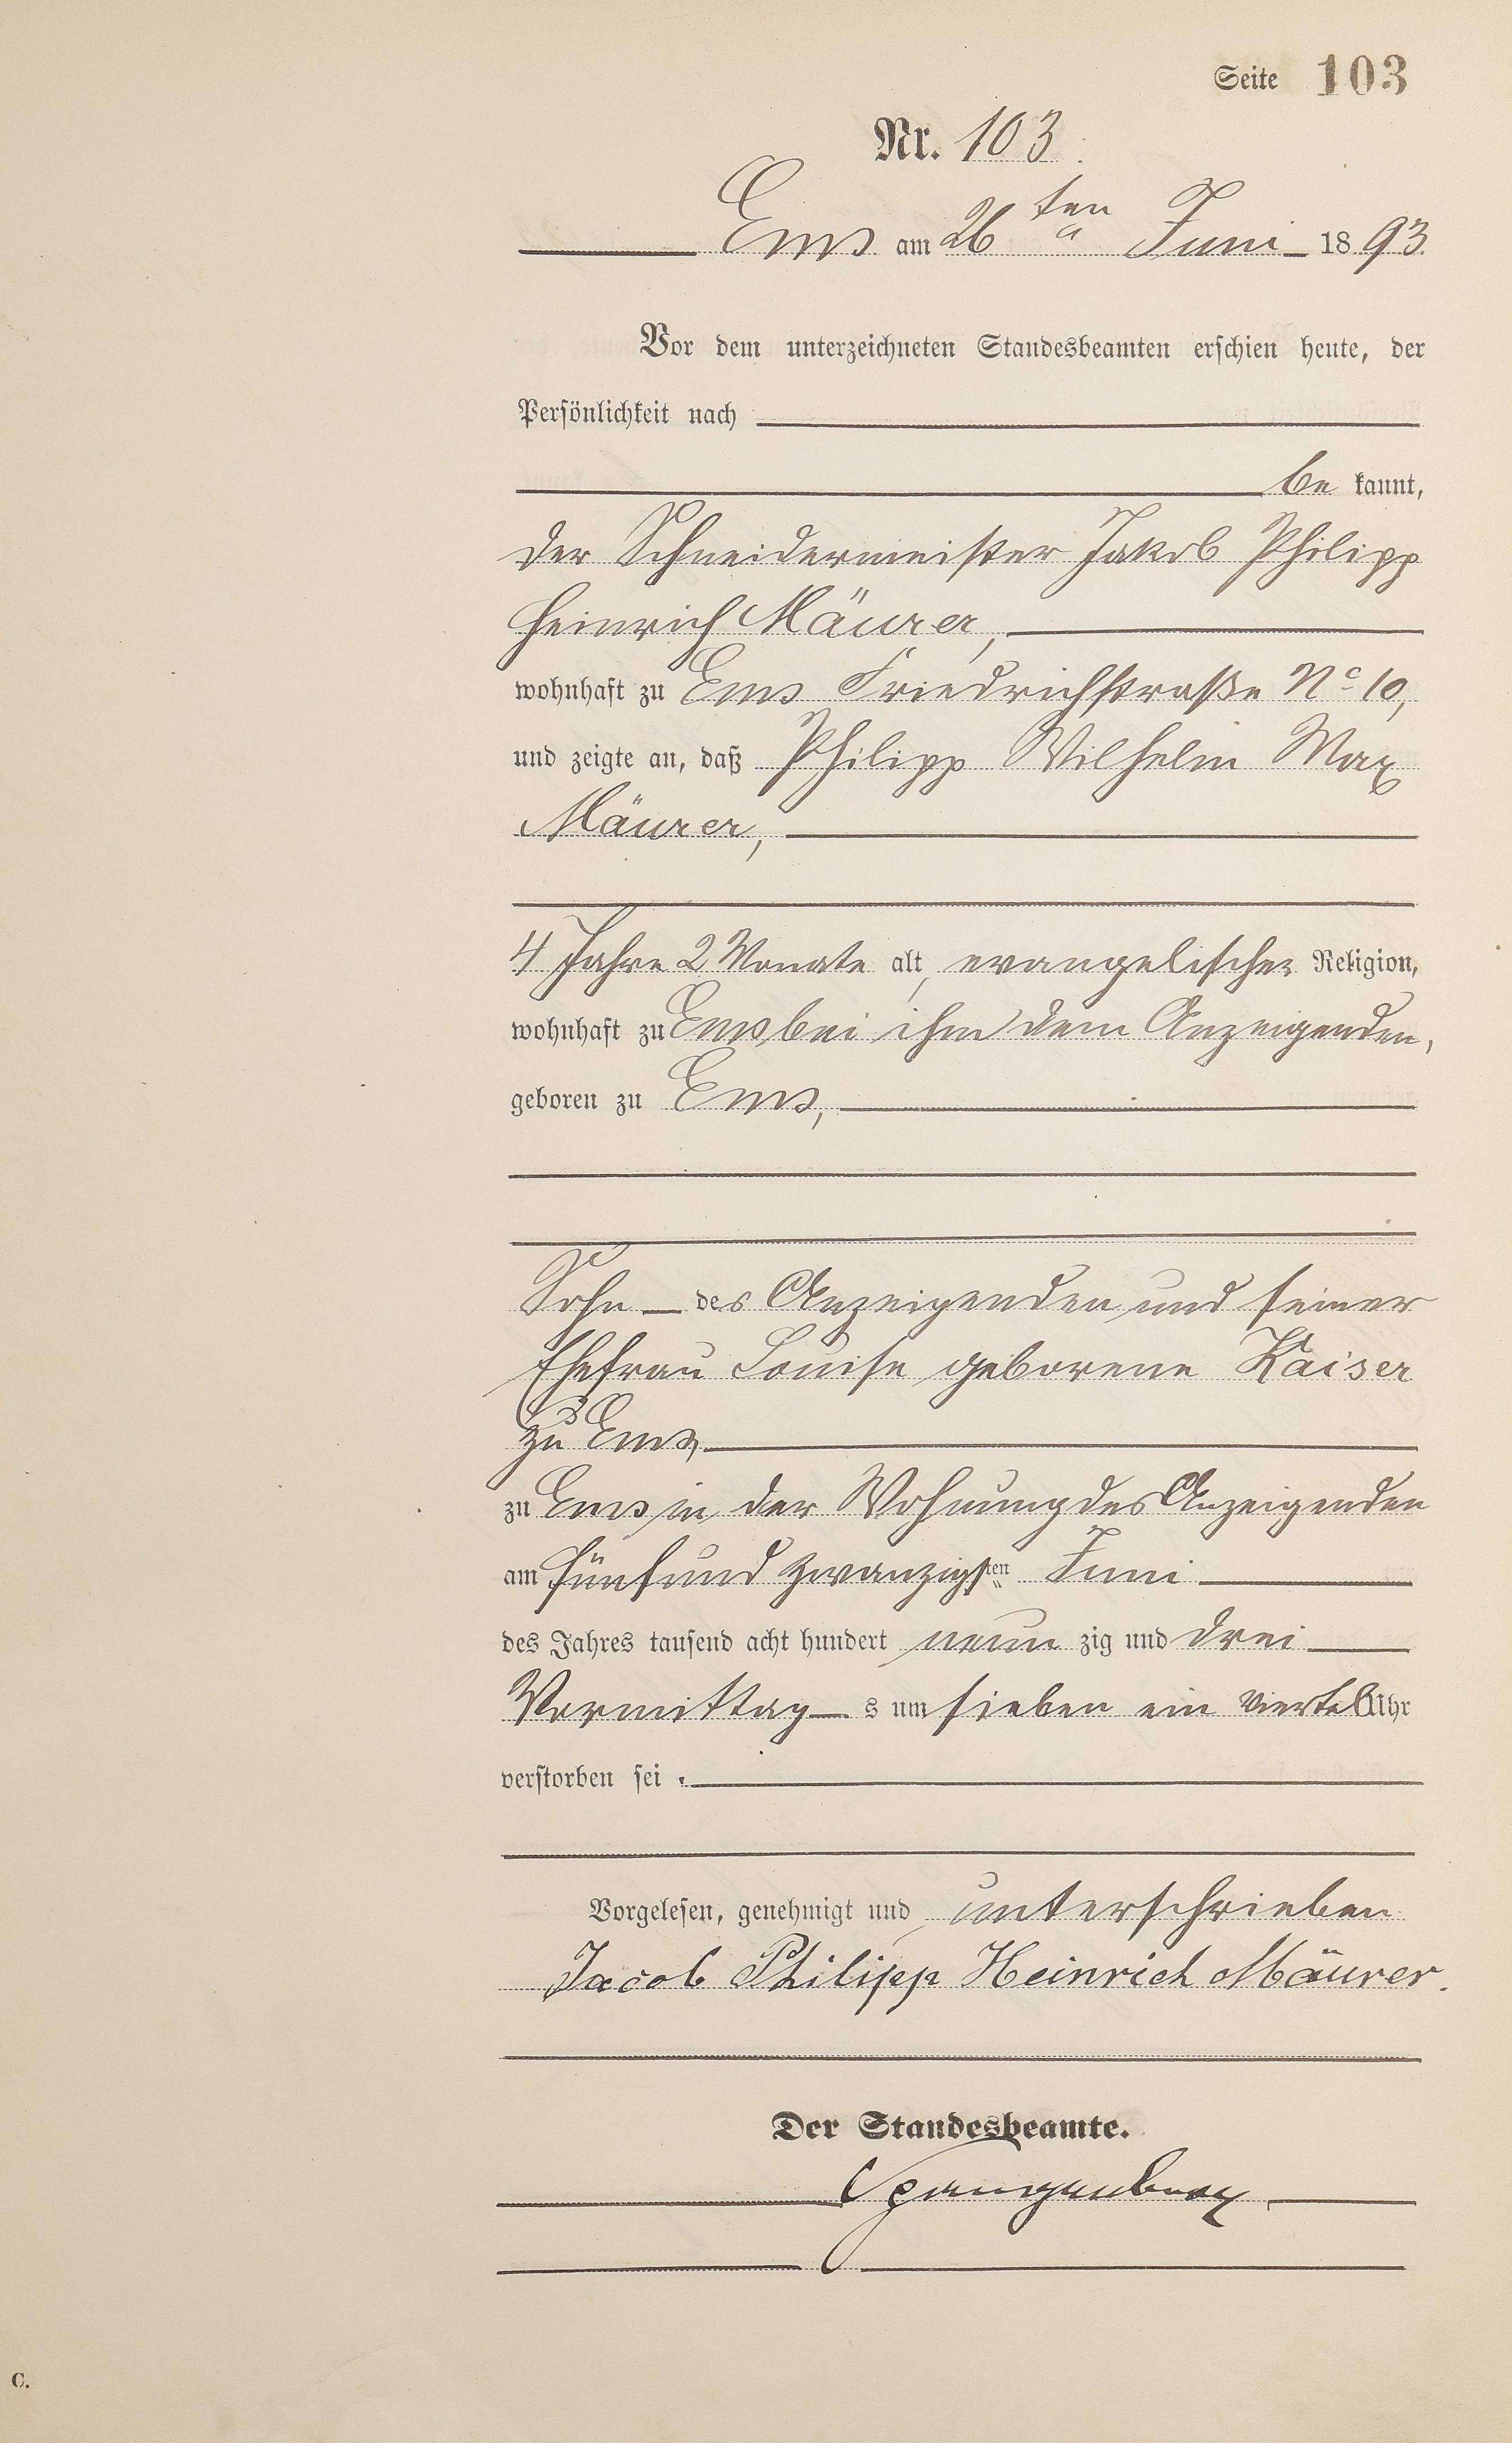 Seite 103
Nr. 103.
Ems am 26ten Juni 1893
Vor dem unterzeichneten Standesbeamten erschien heute, der
Persönlichkeit nach
be kannt,
der Schneidermeister Jakob Philipp
Heinrich Mäurer,
wohnhaft zu Ems Friedrichstraße No 10,
und zeigte an, daß Philipp Wilhelm Max
Mäurer,
4 Jahre 2 Monate alt, evangelischer Religion,
wohnhaft zu Ems bei ihm dem Anzeigenden,
geboren zu Ems,
Sohn des Anzeigenden und seiner
Ehefrau Louise geborene Kaiser
zu Ems,
zu Ems in der Wohnung des Anzeigenden
am fünfund zwanzigsten Juni
des Jahres tausend acht hundert neun zig und drei
Vormittag s um sieben ein viertel Uhr
verstorben sei.
Vorgelesen, genehmigt und unterschrieben
Jacob Philipp Heinrich Mäurer.
Der Standesbeamte.
Spangenberg
C.